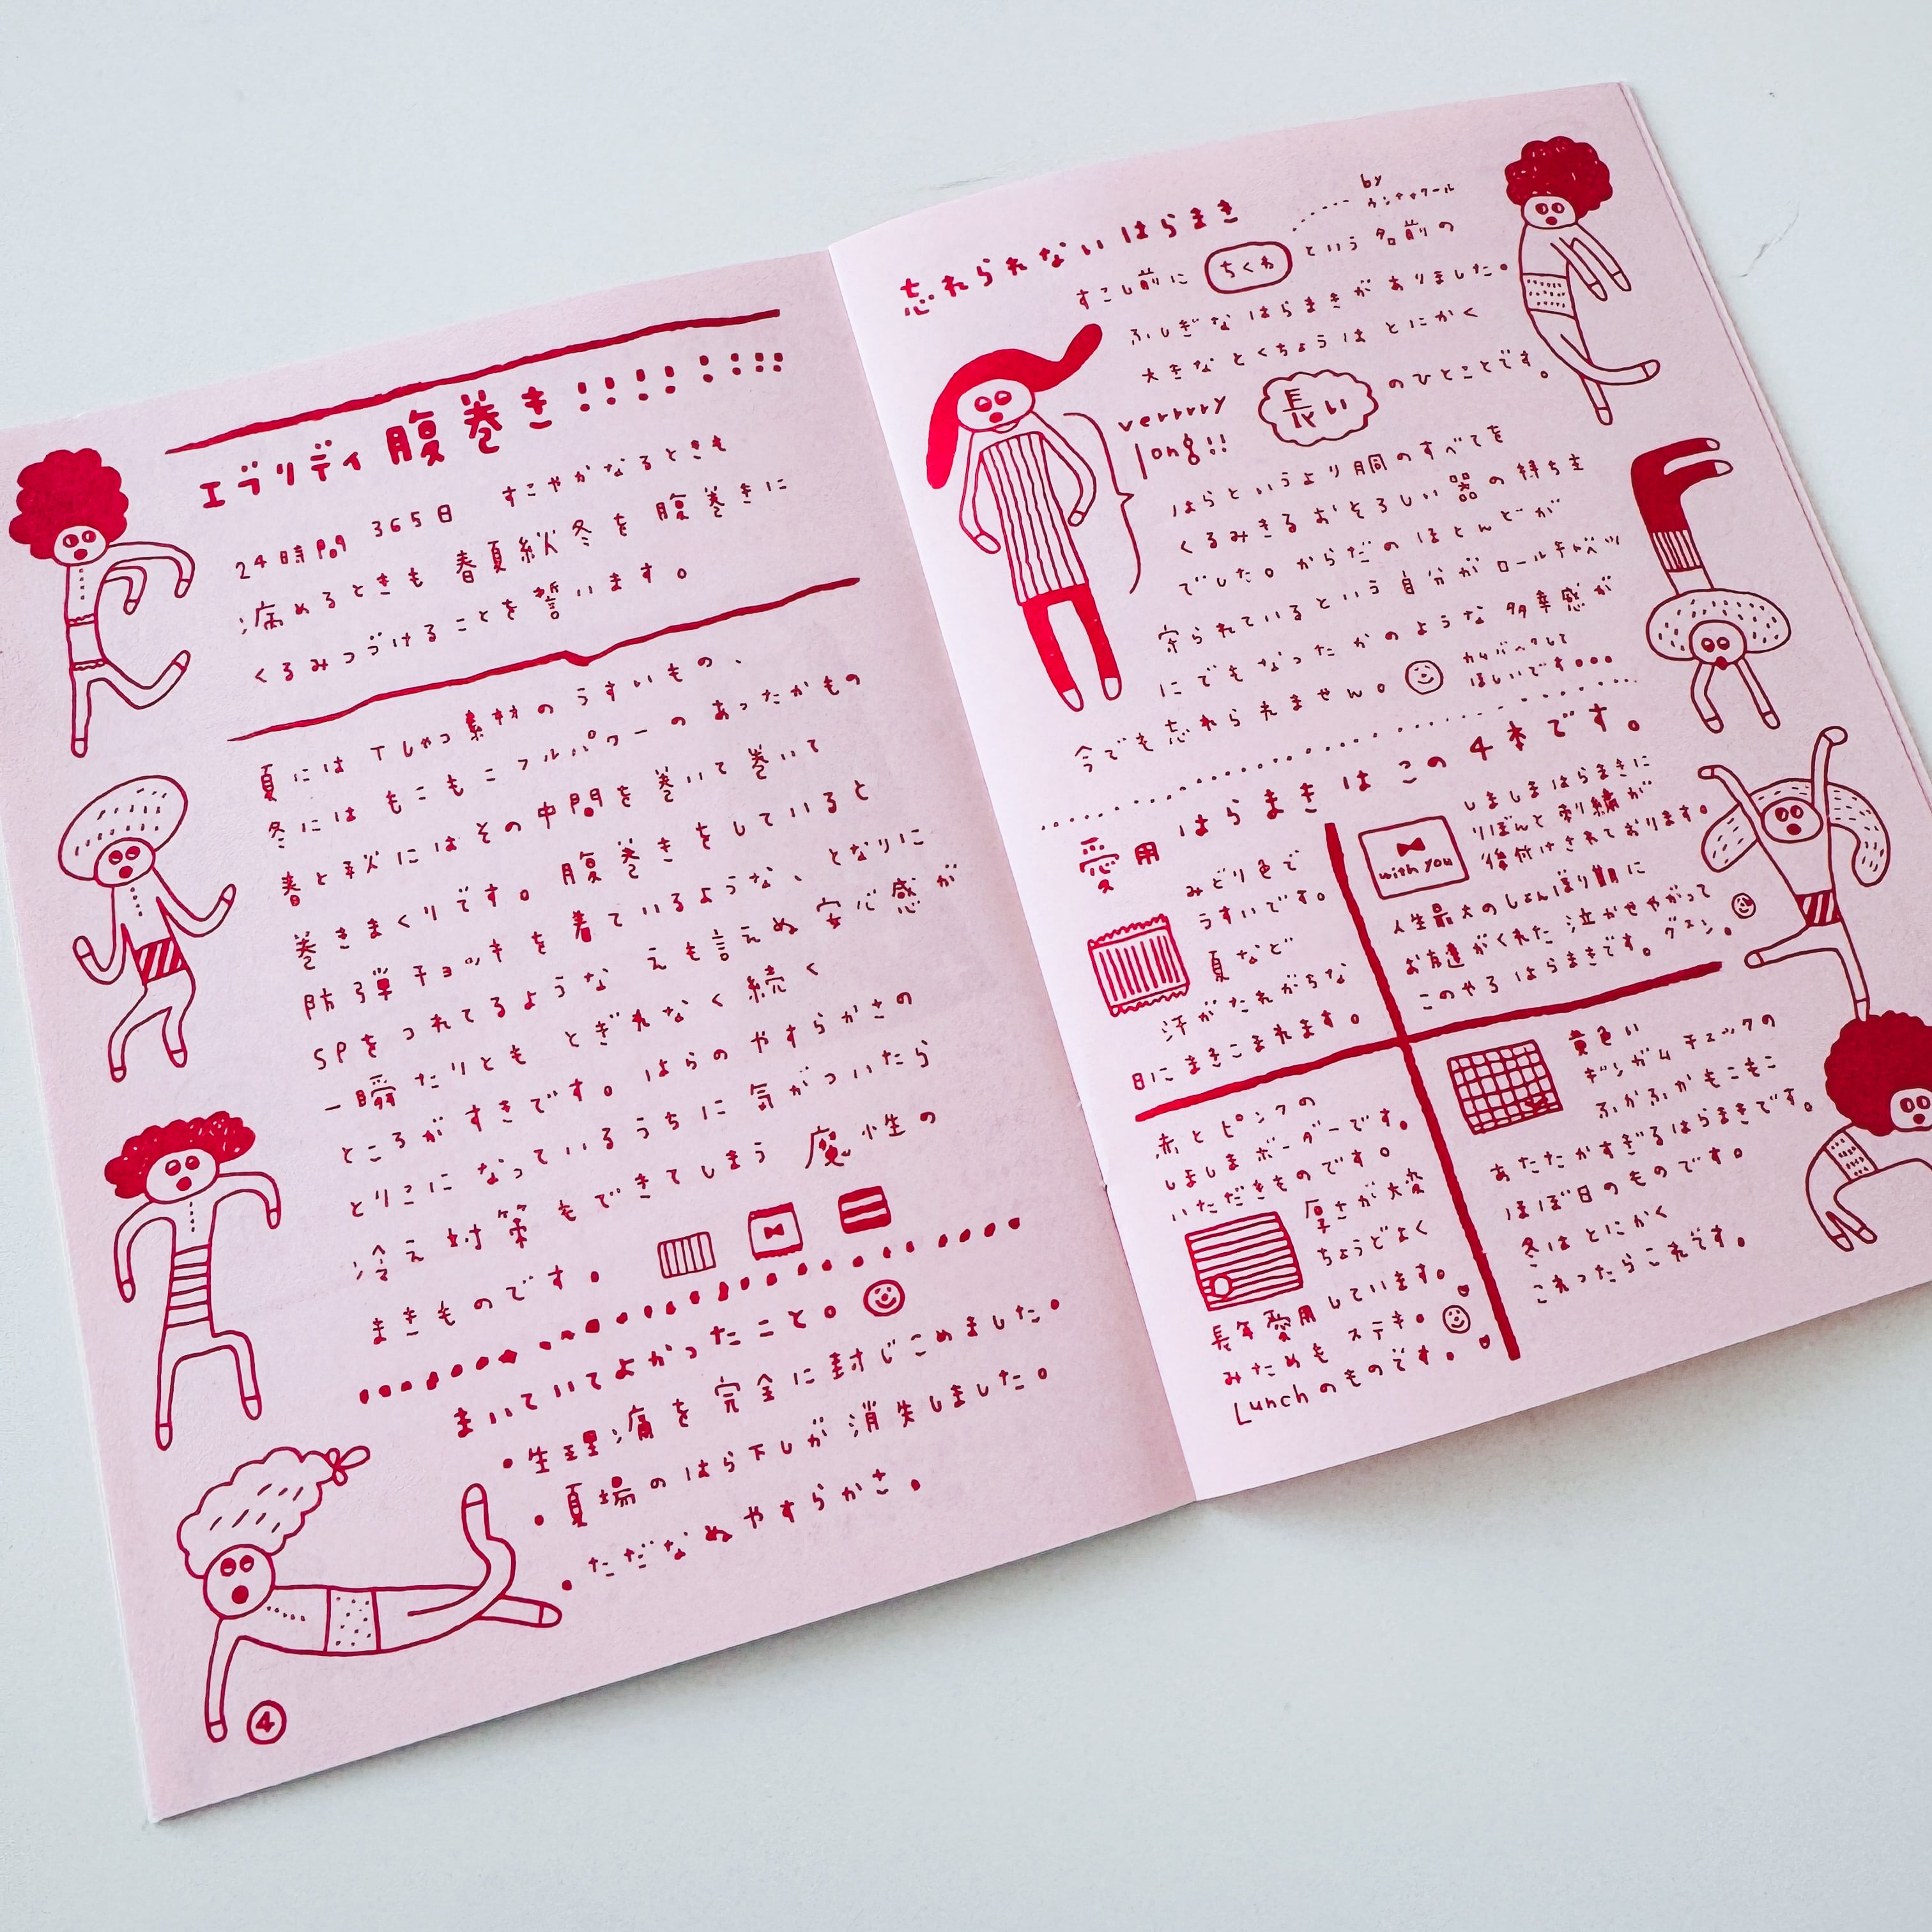 エブリディ腹巻き!!!!!!!!
24時間 365日 すこやかなるときも
病めるときも 春夏秋冬を 腹巻きに
くるみつづけることを誓います。
夏には Tしゃつ素材の うすいもの、
冬には もこもこ フルパワーの あったかもの
春と秋には その中間を 巻いて 巻いて
巻きまくりです。 腹巻きをしていると
防弾チョッキを 着ているような、となりに
SPを つれてるような えも言えぬ 安心感が
一瞬たりとも とぎれなく 続く
ところが すきです。 はらの やすらかさの
とりこに なっているうちに 気がついたら
冷え対策も できてしまう 魔性の
まきものです。
まいていてよかったこと。
・生理痛を 完全に 封じこめました。
・夏場の はら下しが 消失しました。
・ただならぬ やすらかさ。
④
忘れられないはらまき
by
ウンナナクール
すこし前に ちくわ という 名前の
ふしぎな はらまきが ありました。
大きな とくちょうは とにかく
長い のひとことです。
verrrry
long!!
はらというより 胴のすべてを
くるみきる おそろしい器の 持ち主
でした。からだの ほとんどが
守られているという 自分が ロールキャベツ
にでも なったかのような 多幸感が
今でも 忘れられません。
カムバックして
ほしいです…
愛用 はらまきは この 4本です。
みどり色で
うすいです。
夏など
汗がたれがちな
日に まきこまれます。
with you
しましまはらまきに
りぼんと 刺繍が
後付けされております。
人生最大の しょんぼり期に
お友達がくれた 泣かせやがって
このやろ はらまきです。グスン。
赤とピンクの
しましまボーダーです。
いただきものです。
厚さが大変
ちょうどよく
しています。
長年愛用
みためも ステキ。
Lunchのものです。
黄色い
ギンガムチェックの
ふかふかもこもこ
あたたかすぎるはらまきです。
ほぼ日のものです。
冬は とにかく
これったらこれです。